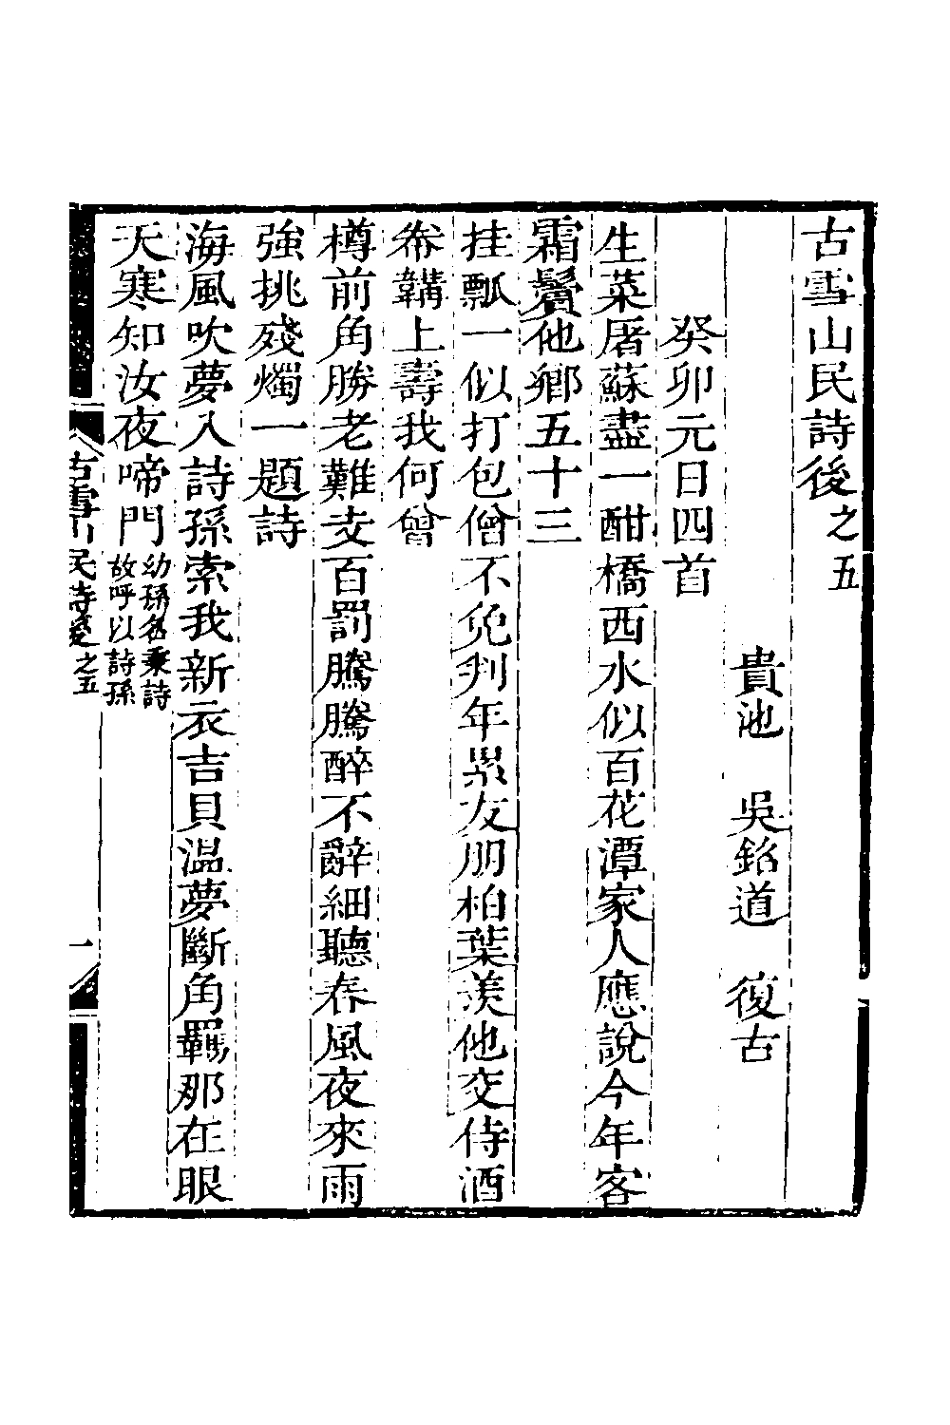 古雪山民詩後之五
貴池　吳銘道　復古
癸卯元日四首
生菜屠蘇盡一酣橋西水似百花潭家人應說今年客
霜鬢他鄉五十三
挂瓢一似打包僧不免判年累友朋柏葉羨他交侍酒
帣韝上壽我何曾
樽前角勝老難支百罰騰騰醉不辭細聽春風夜來雨
強挑殘燭一題詩
海風吹夢入詩孫索我新衣吉貝温夢斷角羈那在眼
天寒知汝夜啼門
幼孫名秉詩
故呼以詩孫
古雪山民詩後之五
一